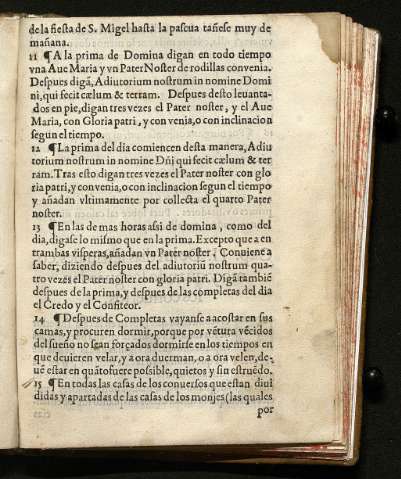 de la fiesta de S. Migel hasta la pascua tañese muy de
mañana.
11 ¶A la prima de Domina digan en todo tiempo
vna Aue Maria y vn Pater Noster de rodillas y con venia.
Despues digã, Adiutorium nostrum in nomine Domi
ni, qui fecit cælum & terram. Despues desto leuanta-
dos en pie, digan tres vezes el Pater noster, y el Aue
Maria, con Gloria patri, y con venia, o con inclinacion
segun el tiempo.
12 ¶La prima del dia comiencen desta manera, Adiu
torium nostrum in nomine Dñi qui fecit cælum & ter
ram. Tras esto digan tres vezes el Pater noster con glo
ria patri, y con venia, o con inclinacion segun el tiempo
y añadan vltimamente por collecta el quarto Pater
noster.
13 ¶En las de mas horas assi de domina, como del
dia, digase lo mismo que en la prima. Excepto que a en
trambas visperas, añadan vn Pater noster. Conuiene a
saber, diziendo despues del adiutoriũ nostrum qua-
tro vezes el Pater noster con gloria patri. Digã tambiẽ
despues de la prima, y despues de las completas del dia
el Credo y el Confiteor.
14 ¶Despues de Completas vayanse a acostar en sus
camas, y procuren dormir, porque por vẽtura vẽcidos
del sueño no sean forçados dormirse en los tiempos en
que deuieren velar, y a ora duerman, o a ora velen, de-
uẽ estar en quãto fuere possible, quietos y sin estruẽdo.
15 ¶En todas las casas de los conuersos que estan diui
didas y apartadas de las casas de los monjes (las quales
por